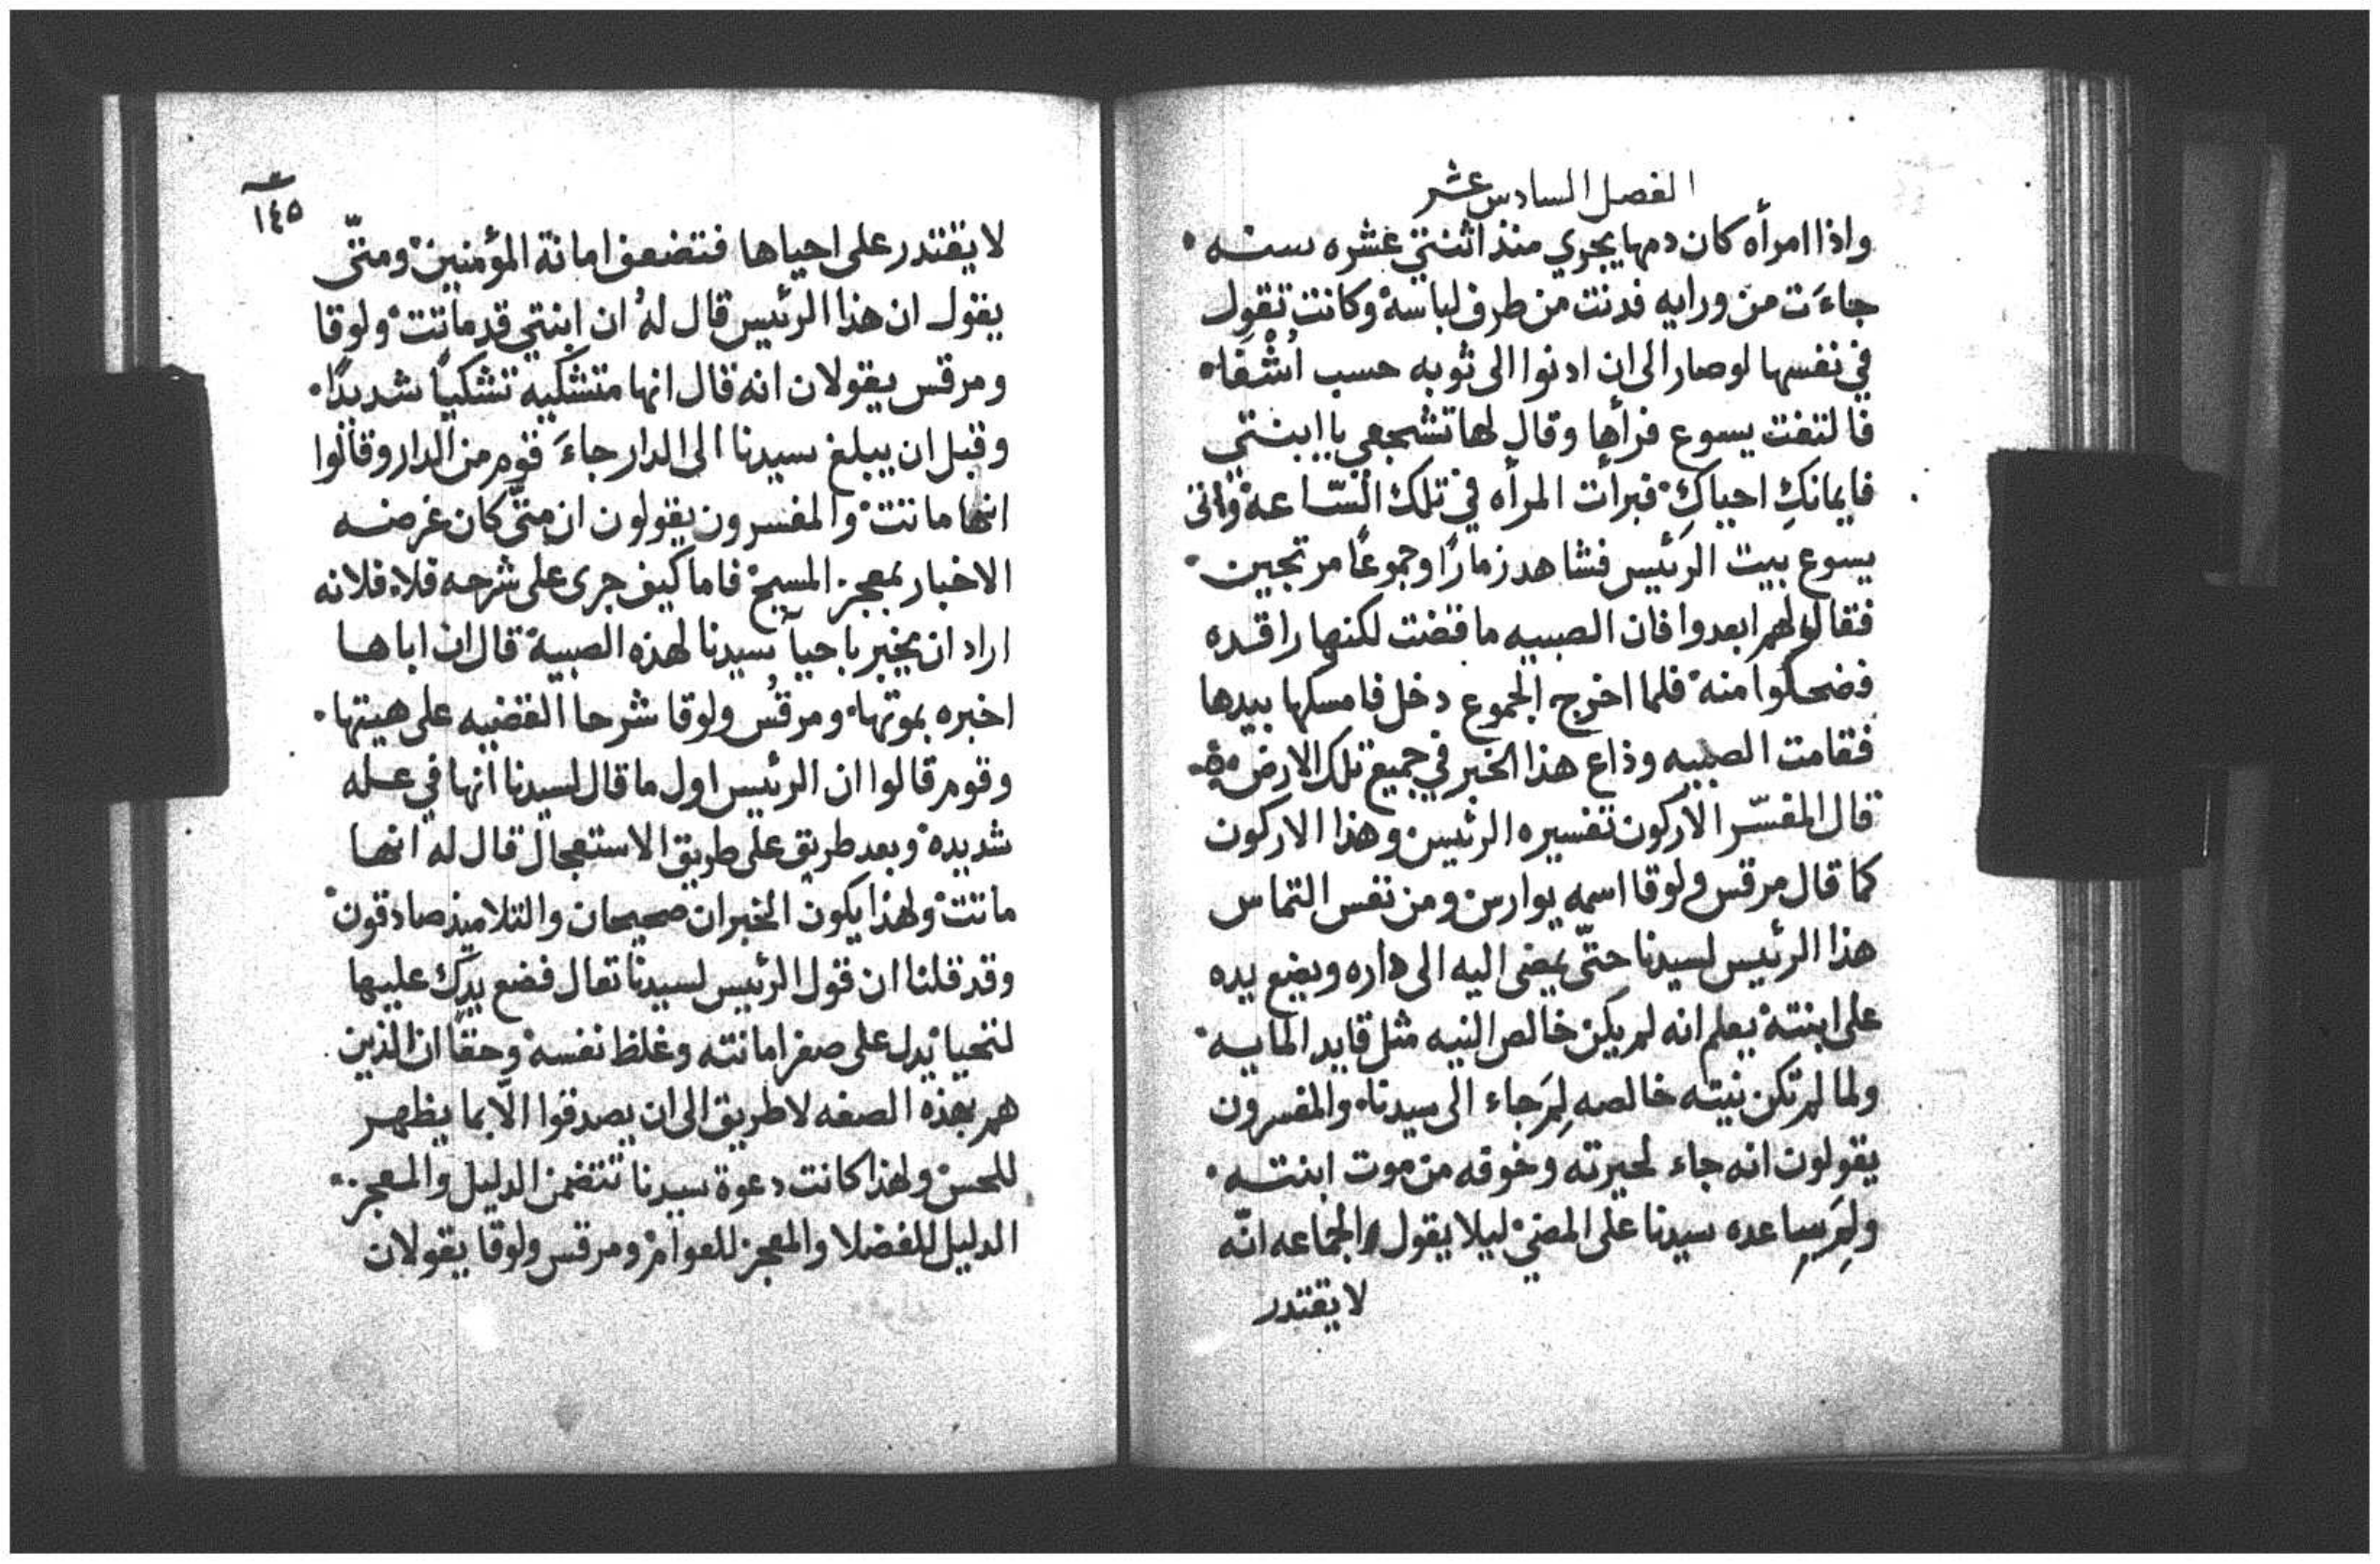 الفصل السادس عشر
واذا امرأه كان دمها يجري منذ اثنتي عشره سنه
جاءَت من ورايه فدنت من طرف لباسه وكانت تقول
في نفسها لو صار الى ان ادنوا الى ثوبه حسب اُشْفاه
فالتفت يسوع فرأها وقال لها تشجعي يا ابنتي
فايمانكِ احياكِ فبرأت المرأه في تلك السّاعة واتى
يسوع بيت الرئيس فشاهد زمارًا وجموعًا مرتجين
فقال لهم ابعدوا فان الصبيه ما قضت لكنها راقده
فضحكوا منه فلما اخرج الجموع دخل فامسكها بيدها
فقامت الصبيه وذاع هذا الخبر في جميع تلك الارض
قال المفسّر الاركون تفسيره الرئيس وهذا الاركون
كما قال مرقس ولوقا اسمه يوارس ومن نفس التماس
هذا الرئيس لسيدنا حتّى يمضى اليه الى داره ويضع يده
على ابنته يعلم انه لم يكن خالص النيه مثل قايد المايه
ولما لم تكن نيته خالصه لِمَ جاء الى سيدنا والمفسرون
يقولون انه جاء لحيرته وخوفه من موت ابنته
ولِمَ ساعده سيدنا على المضي ليلا يقول الجماعه انّه
لا يقتدر
١٤٥
لا يقتدر على احياها فتضعف امانة المؤمنين ومتّى
يقول ان هذا الرئيس قال له ان ابنتي قد ماتت ولوقا
ومرقس يقولان انه قال انها متشكيه تشكيًا شديدًا
وقبل ان يبلغ سيدنا الى الدار جاءَ قوم من الدار وقالوا
انها ماتت والمفسرون يقولون ان متّى كان غرضه
الاخبار بمعجز المسيح فاما كيف جرى على شرحه فلا فلانه
اراد ان يخبر باحيآ سيدنا لهذه الصبية قال ان اباها
اخبره بموتها ومرقس ولوقا شرحا القضيه على هيتها
وقوم قالوا ان الرئيس اول ما قال لسيدنا انها في عله
شديده وبعد طريق على طريق الاستعجال قال له انها
ماتت ولهذا يكون الخبران صحيحان والتلاميذ صادقون
وقد قلنا ان قول الرئيس لسيدنا تعال فضع يدك عليها
لتحيا يدل على صغر امانته وغلظ نفسه وحقًا ان الذين
هم بهذه الصفه لا طريق الى ان يصدقوا الّا بما يظهر
للحس ولهذا كانت دعوة سيدنا تتضمن الدليل والمعجز
الدليل للفضلا والمعجز للعوام ومرقس ولوقا يقولان